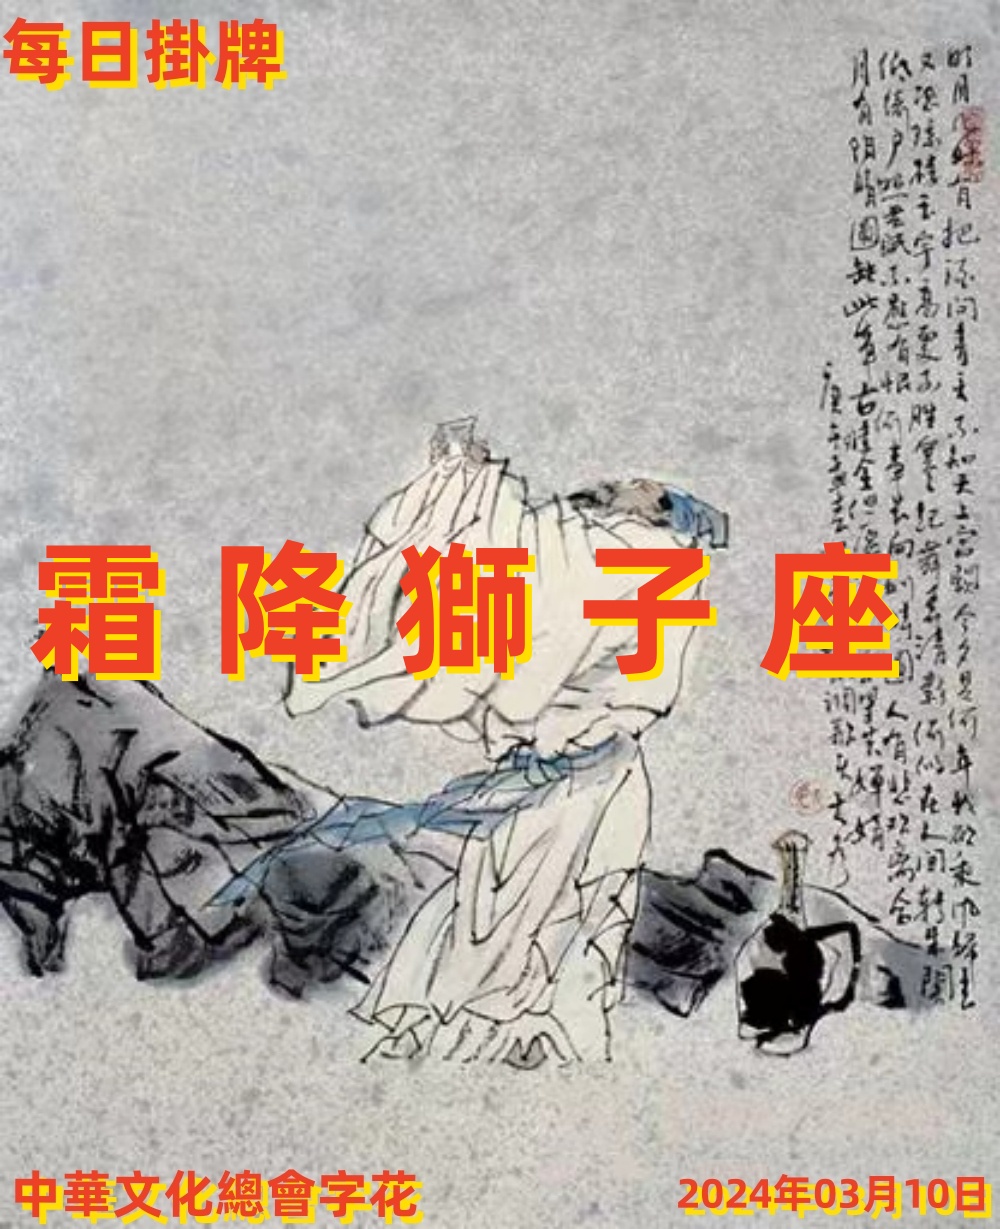 每日掛牌
明月幾時有把酒問青天不知天上宮闕今夕是何年我欲乘風歸去
又恐瓊樓玉宇高更不勝寒起舞弄清影何似在人間轉朱閣
低綺戶照無眠不應有恨何事長向別時圓人有悲歡離合
月有陰晴圓缺此事古難全但願
嬋娟
霜降獅子座
中華文化總會字花
2024年03月10日